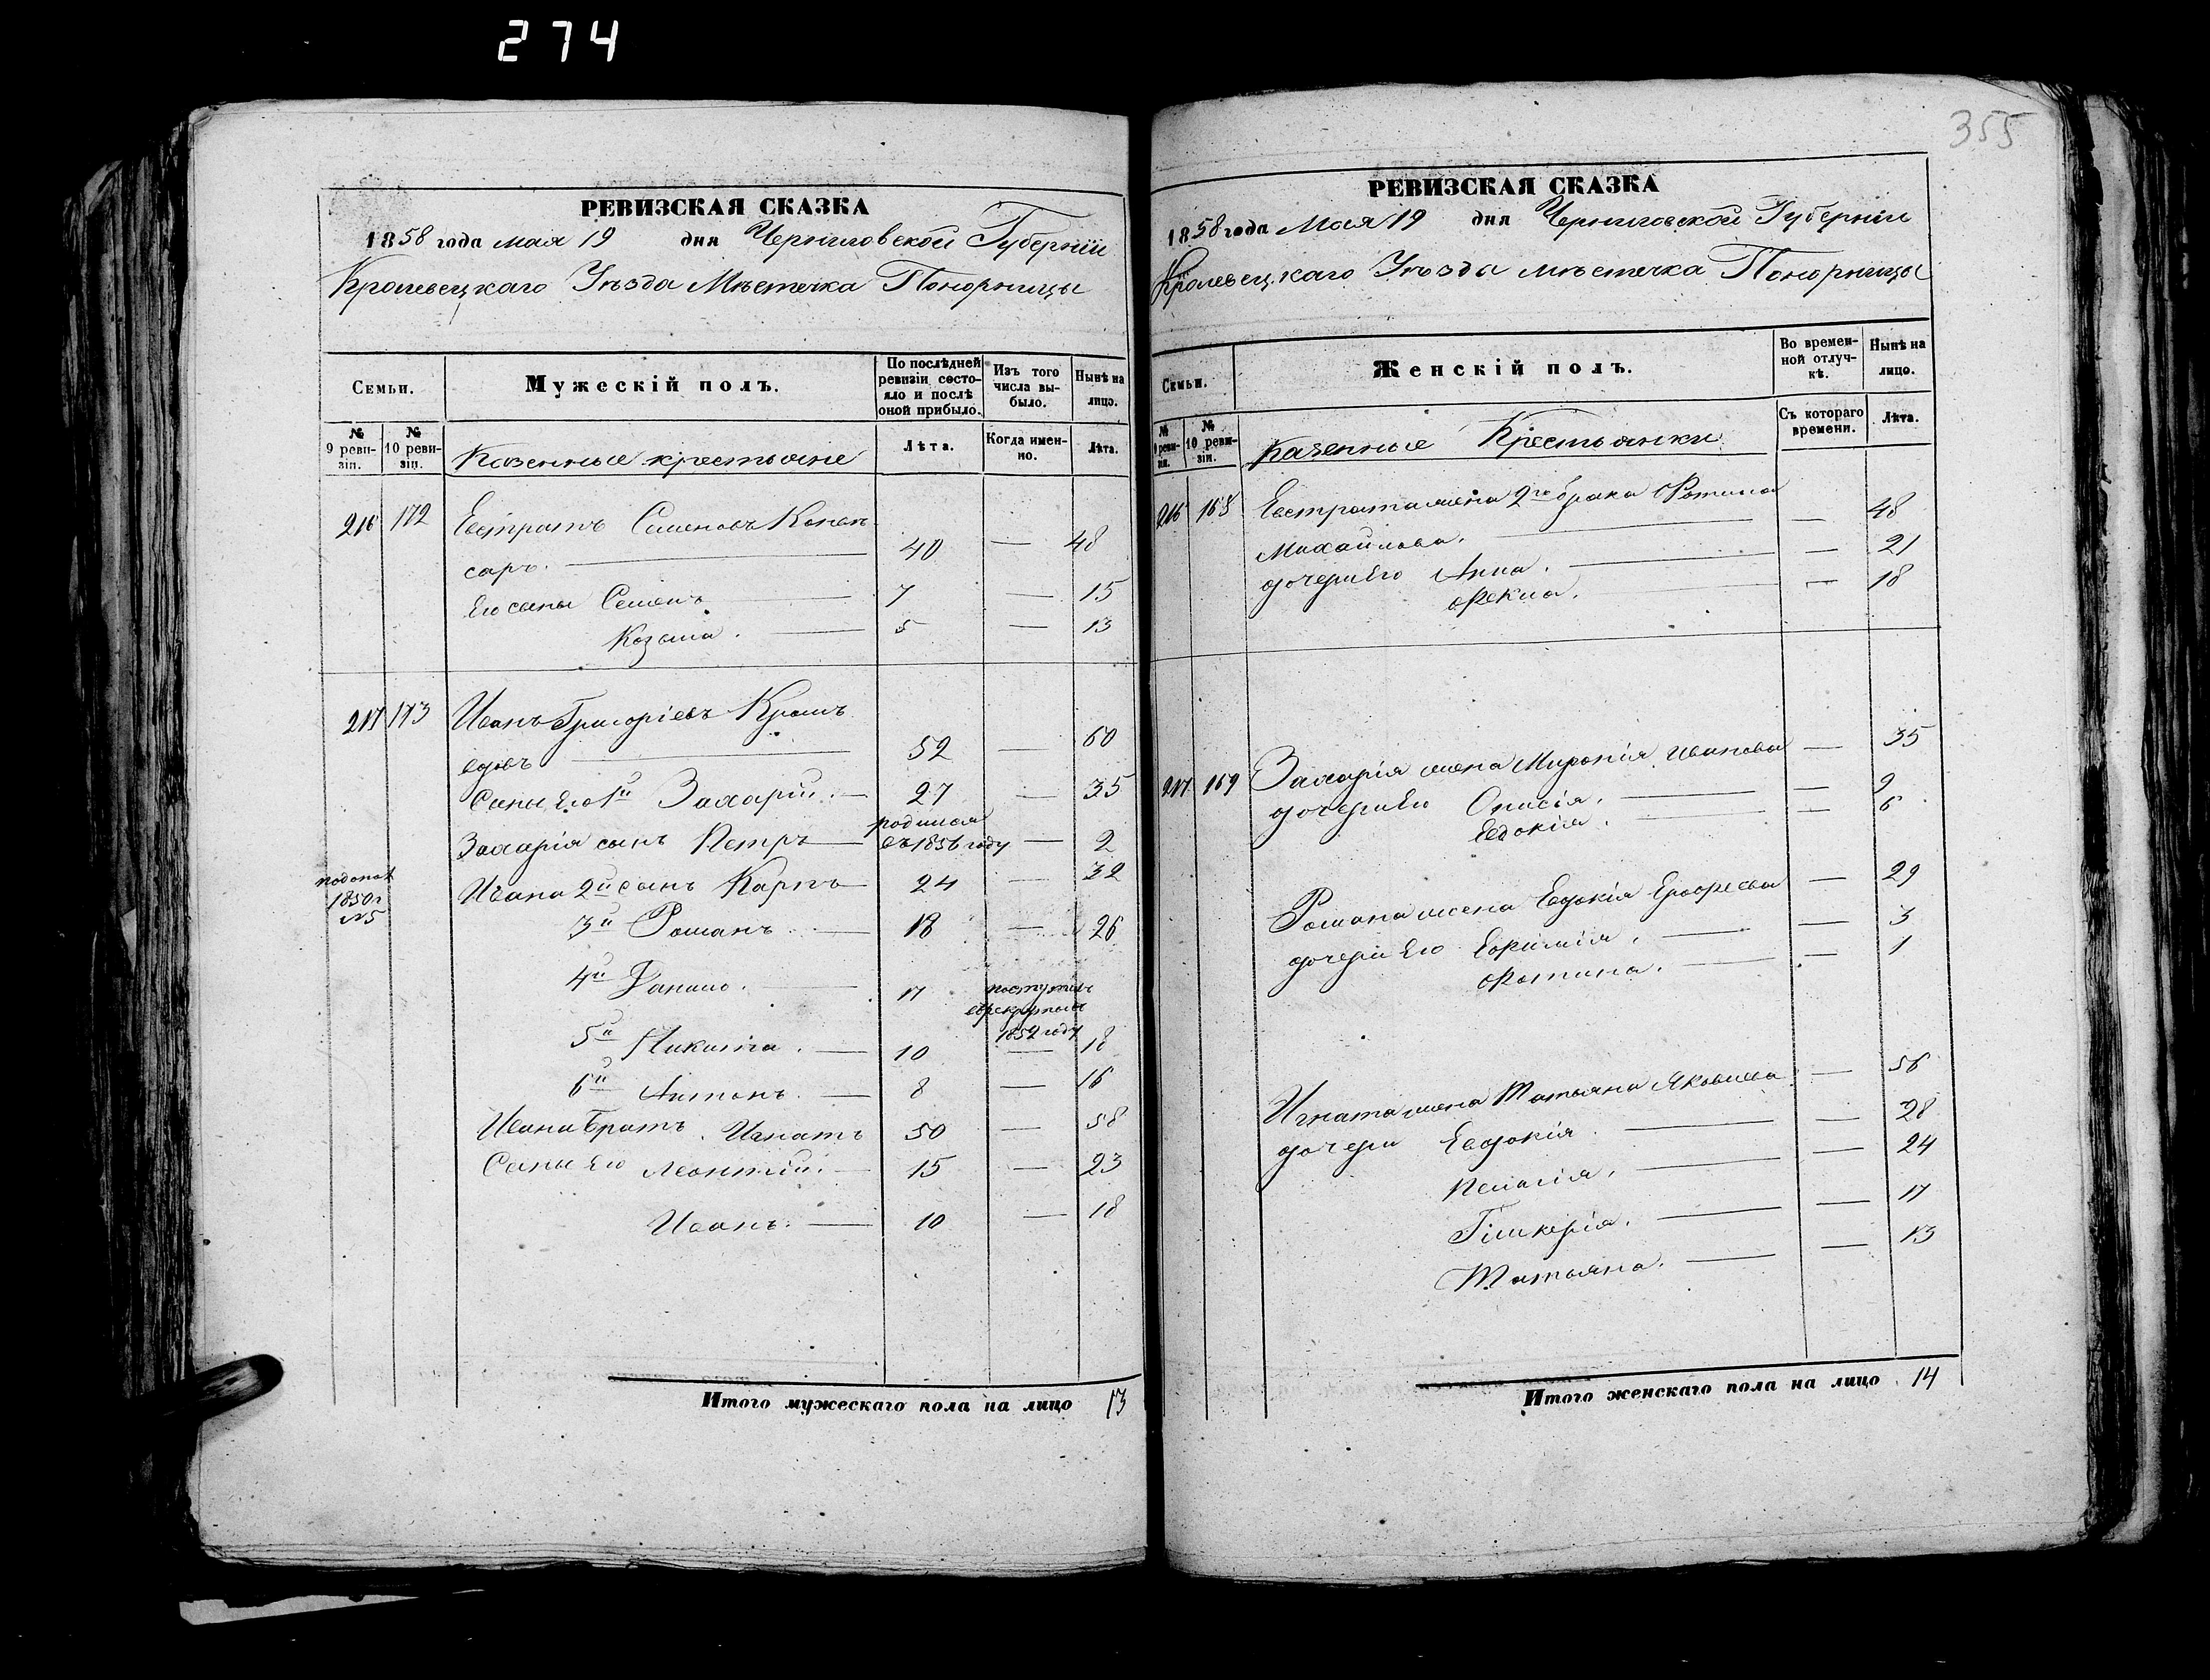 274
355
РЕВИЗСКАЯ СКАЗКА
1858 года мая 19 дня Черниговской Губерніи
Кролевецкаго Уѣзда Мѣстечка Понорницы
Семьи.
Мужескій полъ.
По послѣдней ревизіи состояло и послѣ оной прибыло.
Изъ того числа выбыло.
Нынѣ на лицо.
№ 9 ревизіи.
№ 10 ревизіи.
Казенные крестьяне
Лѣта.
Когда именно.
Лѣта.
216 172 Евстратъ Семеновъ Конон-
саръ. 40 — 48
Его сыны Семенъ 7 — 15
Козьма. 5 — 13
217 173 Иванъ Григоріевъ
вдовъ 52 — 60
Сыны его 1й Захарій. 27 — 35
Захарія сынъ Петръ родился въ 1856 году — 2
1850 г №5
Ивана 2й сынъ Карпъ 24 — 32
3й Романъ. 18 — 26
4й Данило. 17 поступилъ в рекруты въ 1852 году
5й Никита. 10 — 18
6й Антонъ. 8 — 16
Ивана братъ Игнатъ 50 — 58
Сыны его Леонтій. 15 — 23
Иванъ. 10 — 18
Итого мужескаго пола на лицо 13
РЕВИЗСКАЯ СКАЗКА
1858 года Мая 19 дня Черниговской Губерніи
Кролевецкаго Уѣзда мѣстечка Понорницы
Семьи.
Женскій полъ.
Во временной отлучкѣ.
Нынѣ на лицо.
№ 9 ревизіи.
№ 10 ревизіи.
Казенные Крестьянки
Съ котораго времени.
Лѣта.
216 168 Евстрата жена 2го брака Фотина
Михайлова. — 48
дочери его Анна. — 21
Фекла. — 18
217 169 Захарія жена Миронія Иванова — 35
дочери его Онисія. — 9
Евдокія. — 6
Романа жена Евдокія Ерофеева — 29
дочери его Ефимія. — 3
Фотина. — 1
Игната жена Татьяна Яковлева — 56
дочери Евдокія — 28
Пелагія. — 24
Гликерія. — 17
Татьяна. — 13
Итого женскаго пола на лицо 14